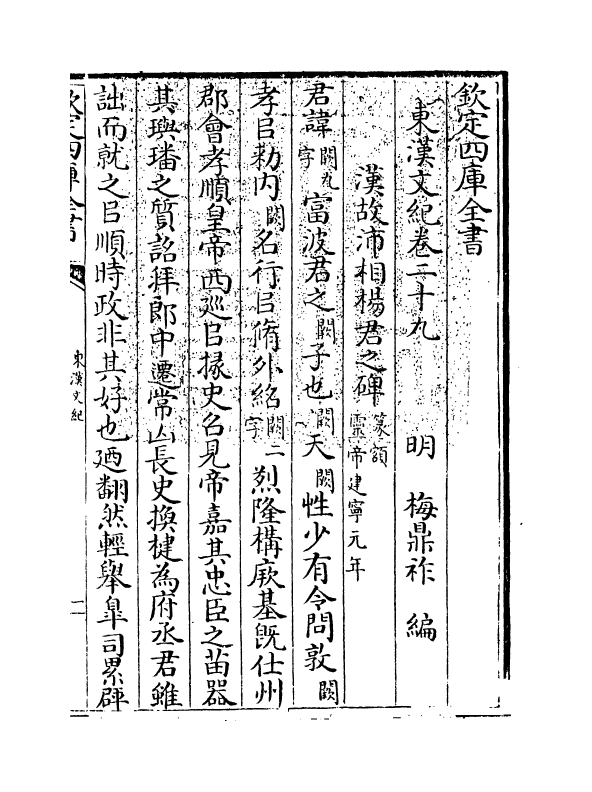 欽定四庫全書
東漢文紀卷二十九
明 梅鼎祚 編
漢故沛相楊君之碑 篆額 靈帝建寧元年
君諱闕九字富波君之闕子也闕天闕性少有令問敦闕
孝㠯勑内闕名行㠯脩外紹闕二字烈隆構厥基既仕州
郡會孝順皇帝西廵㠯掾史召見帝嘉其忠臣之苗器
其璵璠之質詔拜郎中遷常山長史換楗為府丞君雖
詘而就之㠯順時政非其好也廼翻然輕舉皐司累辟
欽定四庫全書
東漢文紀